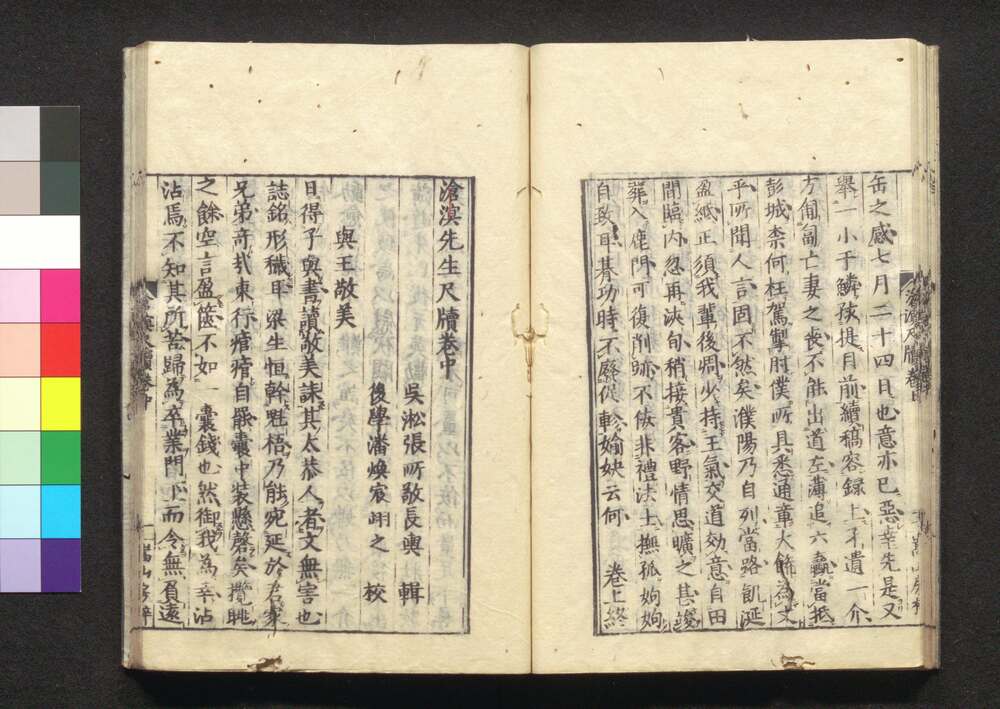 缶之感七月二十四日也意亦已惡幸先是又
舉一小于鱗陝提月前續稿容録上不遺一介
方匍匐亡妻之喪不能出道左薄追六驂當抵
彭城柰何枉駕掣肘僕所具悉通章大餙為文
乎所聞人言固不然矣濮陽乃自列當路飢涎
盈紙正須我輩後凋少持王氣交道効意自田
間臨内忽再浹旬稍接貴客野情思曠之甚竣
葬入鹿門可復削跡不佞非禮法士撫孤姁姁
自致耳綦功時不廢從軫媮姎云何 卷上終
滄溟先生尺牘卷中
吳淞張所敬長輿 輯
後學潘煥宸翊之 校
與王敬美
日得子與書讀敬美誄其太恭人者文無害也
誌銘形穢耳梁生恒幹魁梧乃能宛延於君家
兄弟奇哉東行瘡痏自嚴囊中裝懸磬矣攬眺
之餘空言盈篋不如一囊錢也然御我為幸沾
沾焉不知其所苦歸為卒業門下而令無負遠